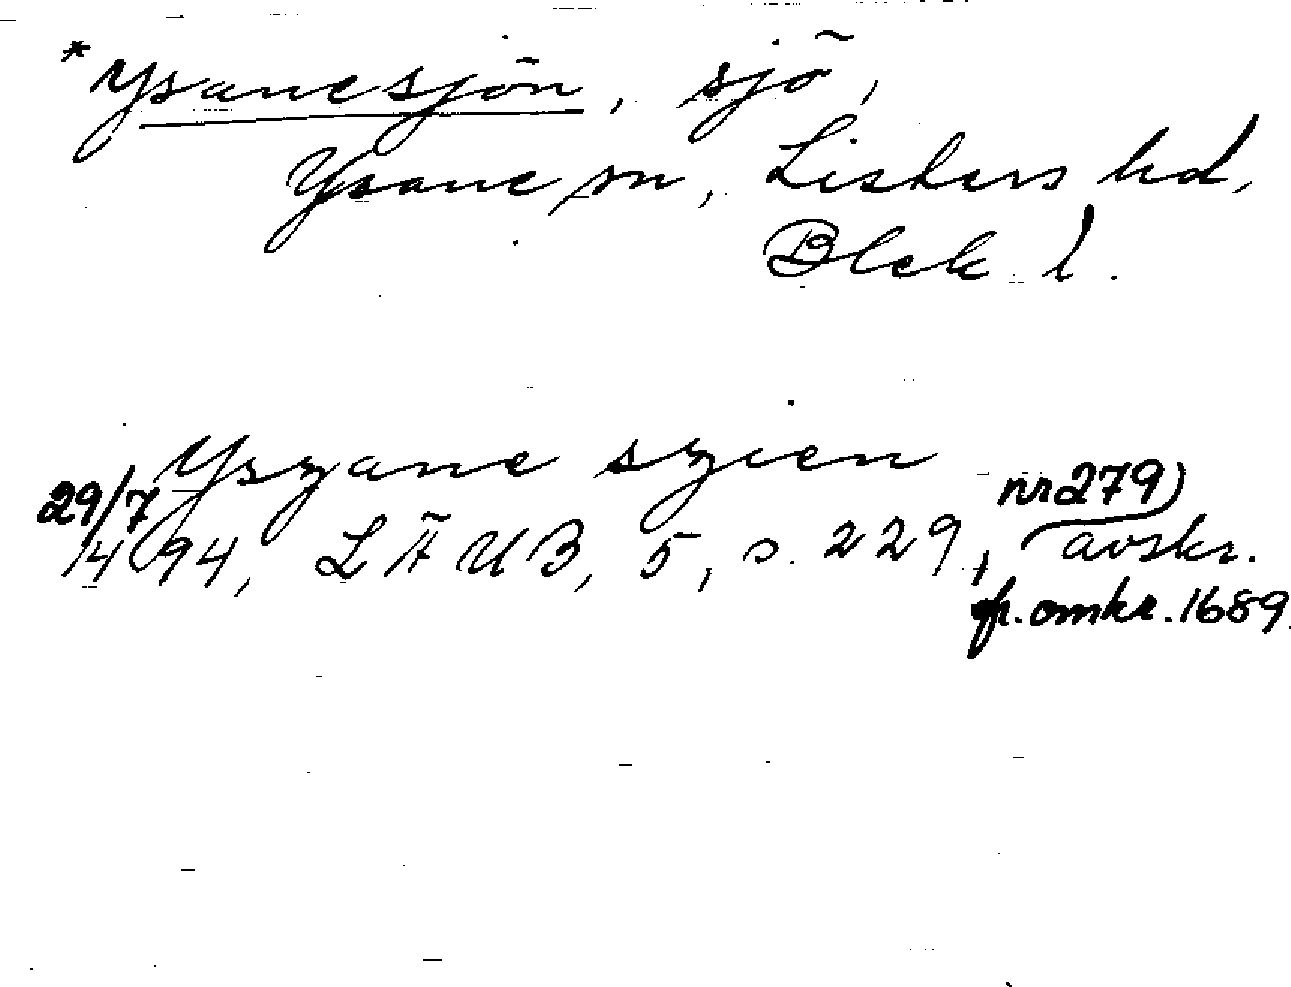 * Ysanesjön, sjö,
Ysane sn, Listers hd,
Blek. l.
Yszane szien
29/7 1494, LÄUB, 5, s. 229, nr 279) avskr.
fr. omkr. 1689.